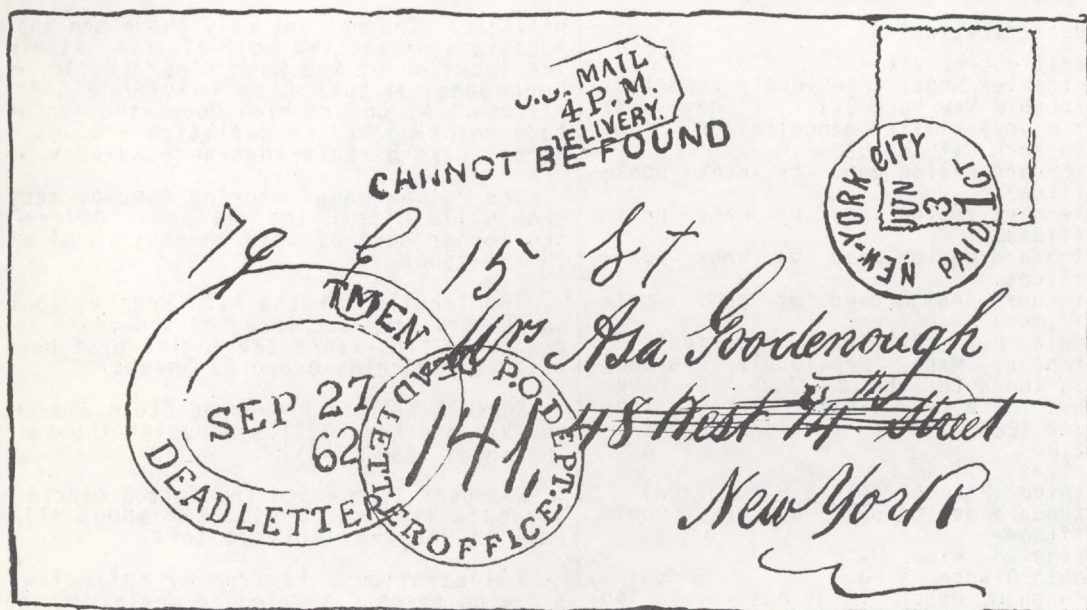 U.S. MAIL
4 P.M.
DELIVERY.
CANNOT BE FOUND
NEW-YORK CITY
JUN
3
PAID 1 Ct
19 E 15 St
Mrs Asa Goodenough
48 West 14 Street
New York
TMEN
SEP 27
62
DEAD LETTER
P.O. DEPT.
DEAD LETTER OFFICE.
141